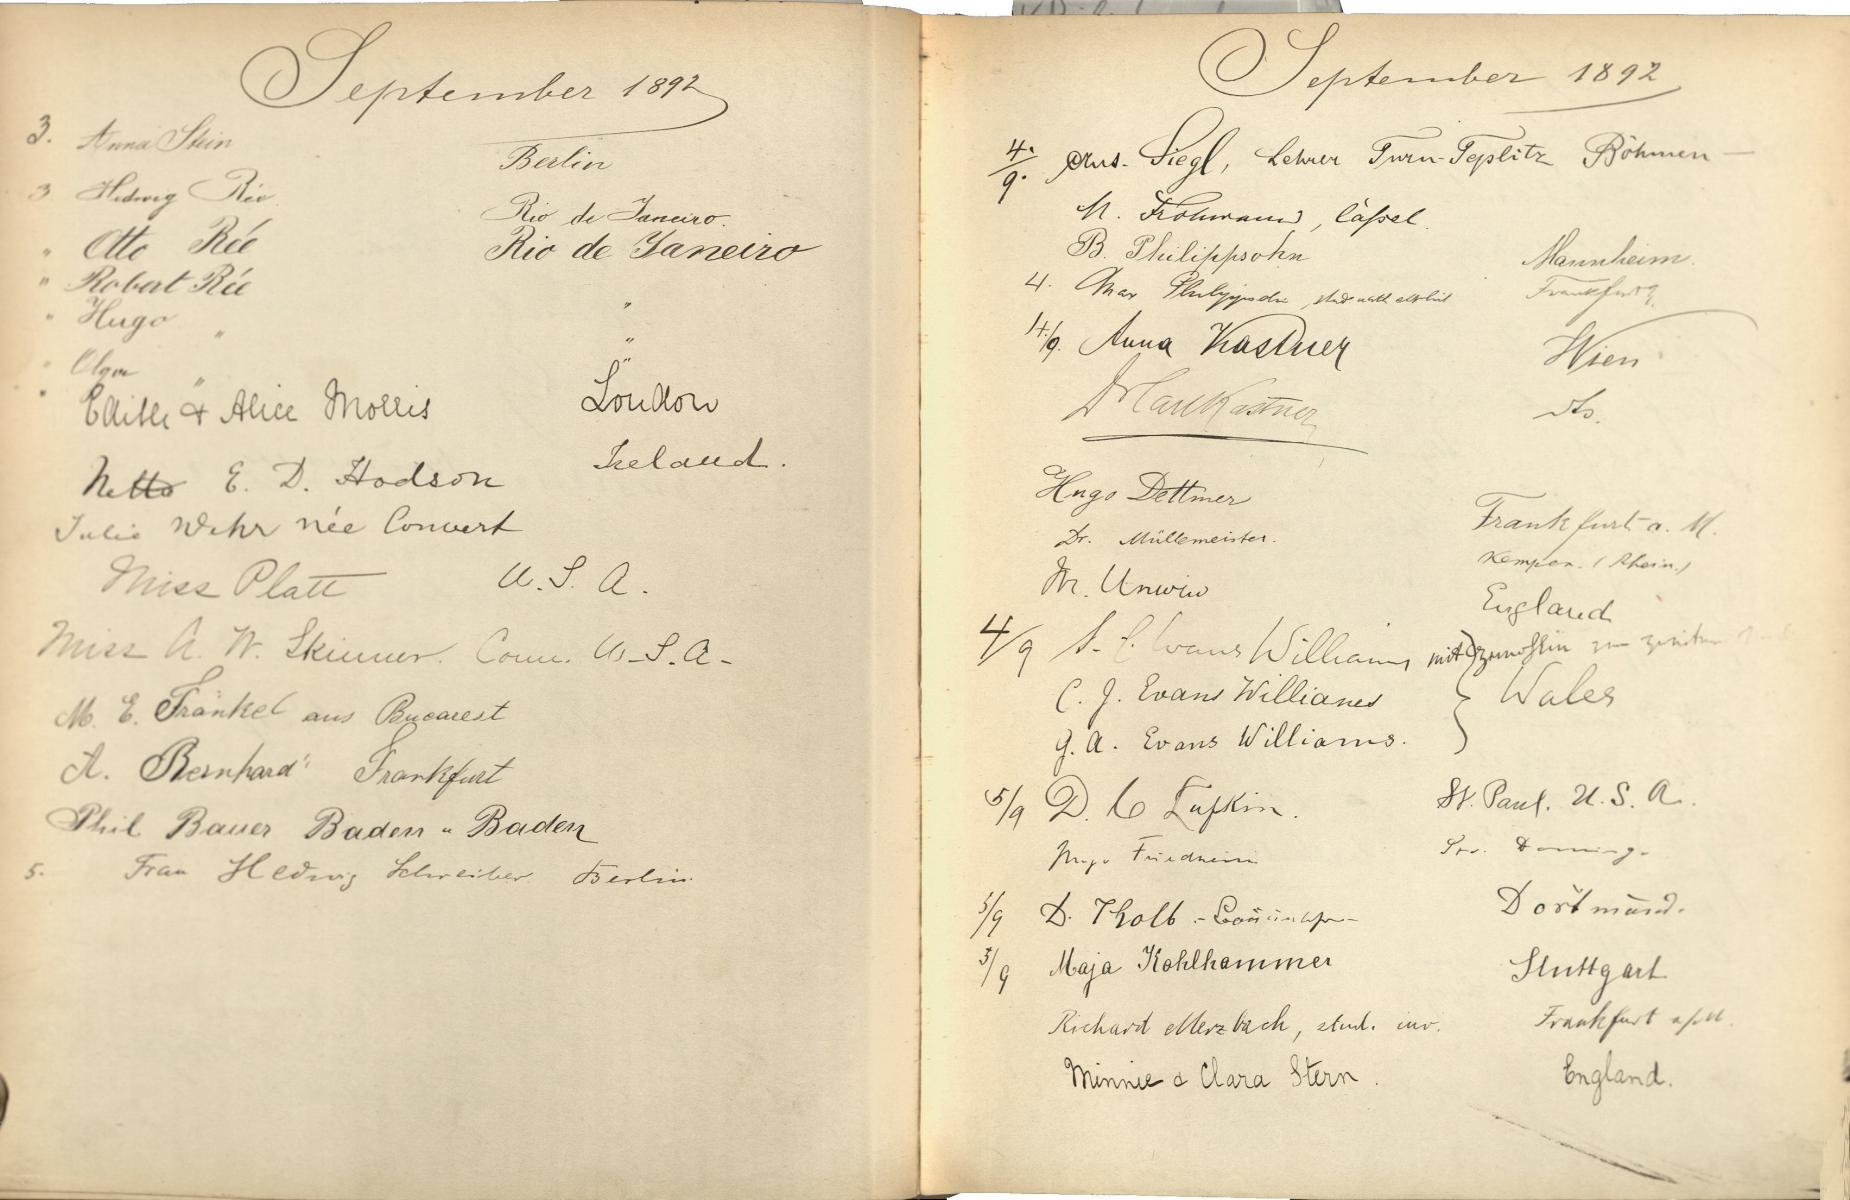 September 1892
3. Anna Stein Berlin
3 Hedwig Rée Rio de Janeiro.
" Otto Rée Rio de Janeiro
" Robert Rée "
" Hugo " "
" Olga " "
" Edith & Alice Morris London
Netto E. D. Hodson Ireland.
Julie Wehr née Convert
Miss Platt U.S.A.
Miss A. W. Skinner. Conn. U.S.A-
M. E. Fränkel aus Bucarest
A. Bernhard Frankfurt
Phil Bauer Baden-Baden
5. Frau Hedwig Schreiber Berlin.
September 1892
4./9. Siegl, Lehrer Turn-Teplitz Böhmen-
M. Frohmann, Cassel.
B. Philippsohn Mannheim.
4. Max Frankfurt
4./9. Anna Kastner Wien
Dr Carl Kastner dto.
Hugo Dettmer Frankfurt a. M.
Dr. Müllemeister. Kempen. (Rhein.)
Mr. Unwin England
4/9 Evans Williams mit
C. J. Evans Williames } Wales
G. A. Evans Williams.
5/9 D. C Lufkin. St. Paul. U. S. A.
Friedheim
5/9 D. Dortmund.
5/9 Maja Kohlhammer Stuttgart
Richard Merzbach, stud. iur. Frankfurt a/M.
Minnie & Clara Stern. England.